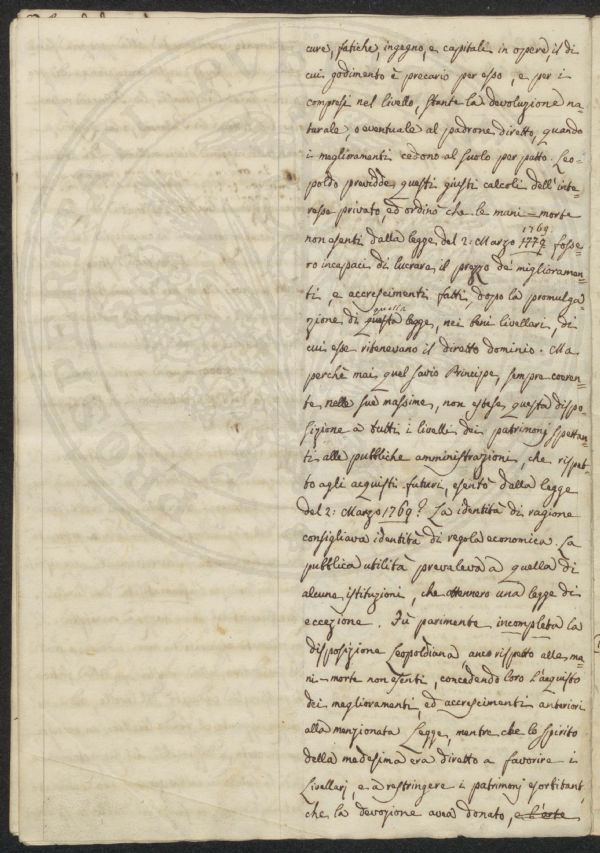 cure, fatiche, ingegno, e capitali in opere, il di
cui godimento è precario per esso, e per i
compresi nel livello, stante la devoluzione na-
turale, o eventuale al padrone diretto, quando
i miglioramenti cedono al suolo per patto. Leo-
poldo previdde questi giusti calcoli dell'inte-
resse privato, ed ordinò che le mani-morte
1769
non esenti dalla legge del 2: Marzo 1772 fosse-
ro incapaci di lucrare il prezzo de' miglioramen-
ti, e accrescimenti fatti, dopo la promulga-
quella
zione di questa legge, nei beni livellari, di
cui esse ritenevano il diretto dominio. Ma
perchè mai quel savio Principe, sempre coeren-
te nelle sue massime, non estese questa dispo-
sizione a tutti i livelli dei patrimonj spettan-
ti alle pubbliche amministrazioni, che rispet-
to agli acquisti futuri, esentò dalla legge
del 2: Marzo 1769? La identità di ragione
consigliava identità di regola economica. La
pubblica utilità prevaleva a quella di
alcune istituzioni, che ottennero una legge di
eccezione. Fù parimente incompleta la
disposizione Leopoldiana anco rispetto alle ma-
ni-morte non esenti, concedendo loro l'acquisto
dei miglioramenti, ed accrescimenti anteriori
alla menzionata Legge, mentre che lo spirito
della medesima era diretto a favorire i
Livellarj, e a restringere i patrimonj esorbitanti,
che la devozione avea donato, e l'arte